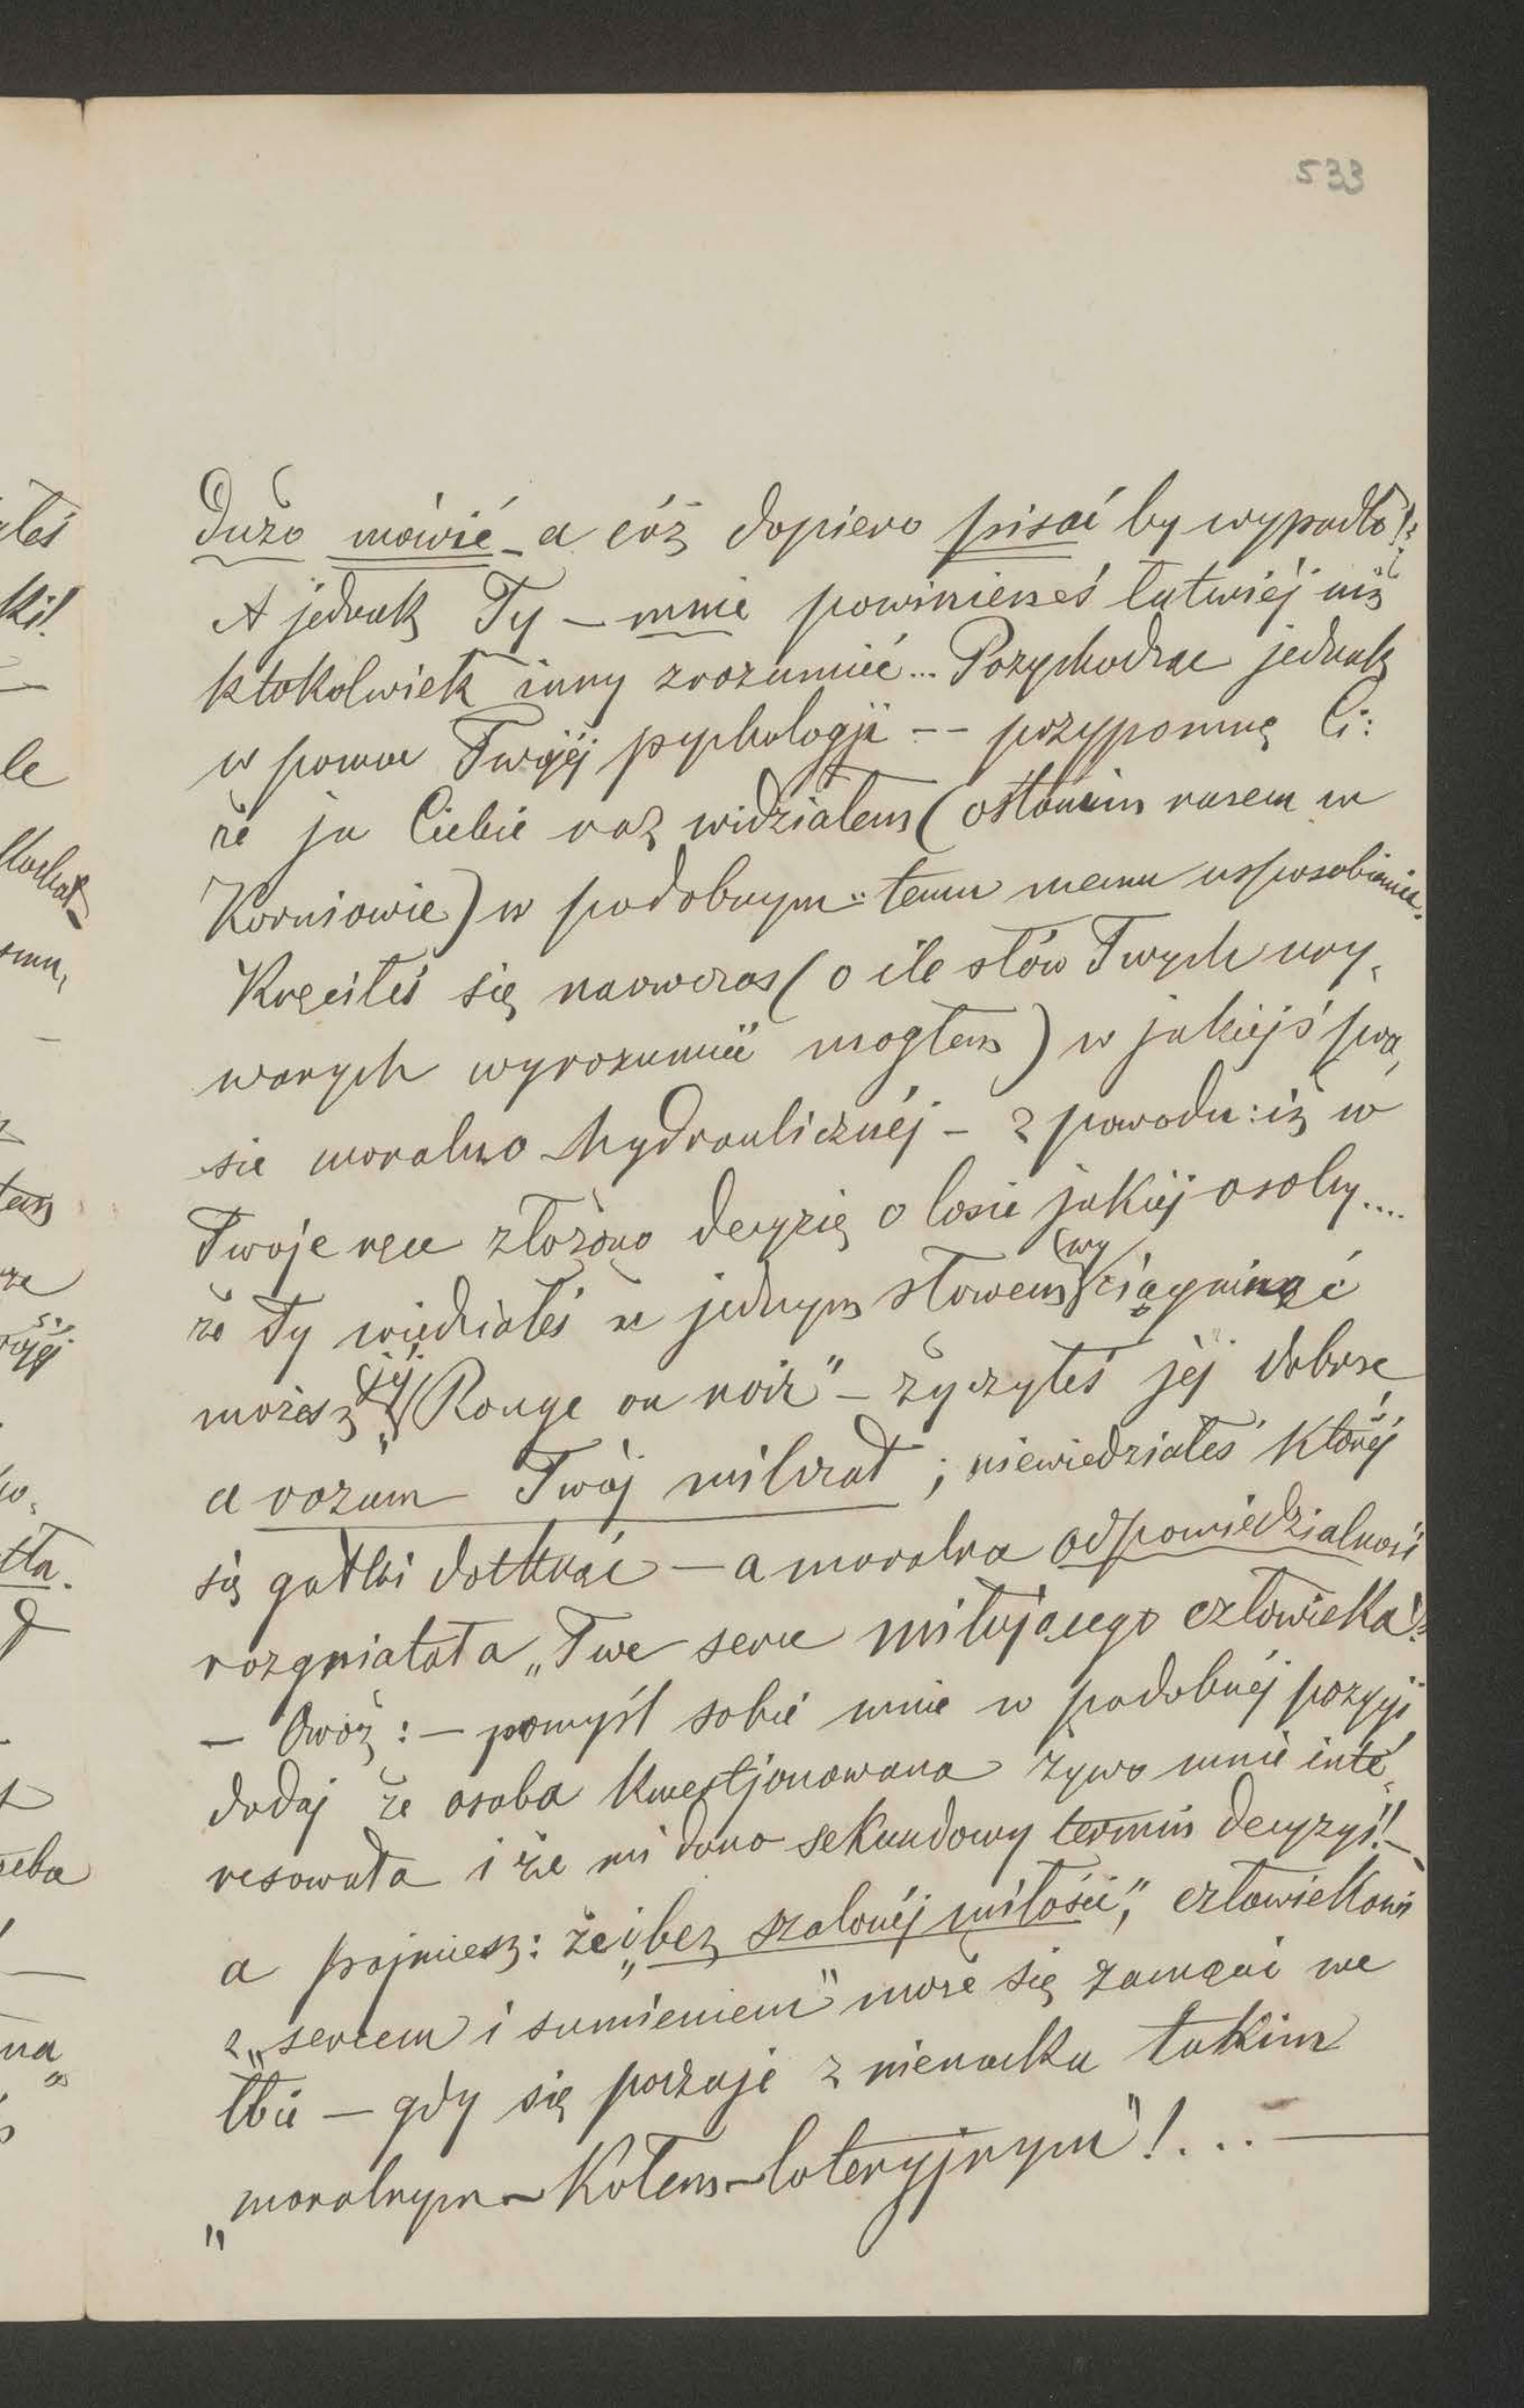 533
Dużo mówić – a cóż dopiero pisać by wypadło!?
A jednak Ty – mnie powinieneś łatwiéj niż
ktokolwiek inny zrozumieć... Przychodząc jednak
w pomoc Twojéj psychologji –– przypomnę Ci:
że ja Ciebie raz widziałem (ostatnim rasem w
Korniowie) w podobnym temu memu usposobieniu.
Kręciłeś się naówczas (o ile słów Twych ury-
wanych wyrozumieć mogłem) w jakiejś pra-
sie moralno hydraulicznéj – z powodu: iż w
Twoje ręce złożono decyzię o losie jakiéj osoby....
że Ty wiedziałeś że jednym słowem wyciągnąć
możesz jéj „Rouge ou noir" – życzyłeś jéj dobrze
a rozum Twój milczał; niewiedziałeś któréj
się gałki dotknąć – a moralna odpowiedzialność
rozgniatała „Twe serce miłującego człowieka"
– Owóż: – pomyśl sobie mnie w podobnéj pozycji
dodaj że osoba kwestjonowana żywo mnie inte-
resowała i że mi dano sekundowy termin decyzyi! –
a pojmiesz: że i „bez szalonéj miłości", człowiekowi
z „sercem i sumieniem" może się zamącić we
łbie – gdy się poczuje z nienacka takim
„moralnym – Kołem – loteryjnym"!... –
ki!
le
tem
sna,
tła.